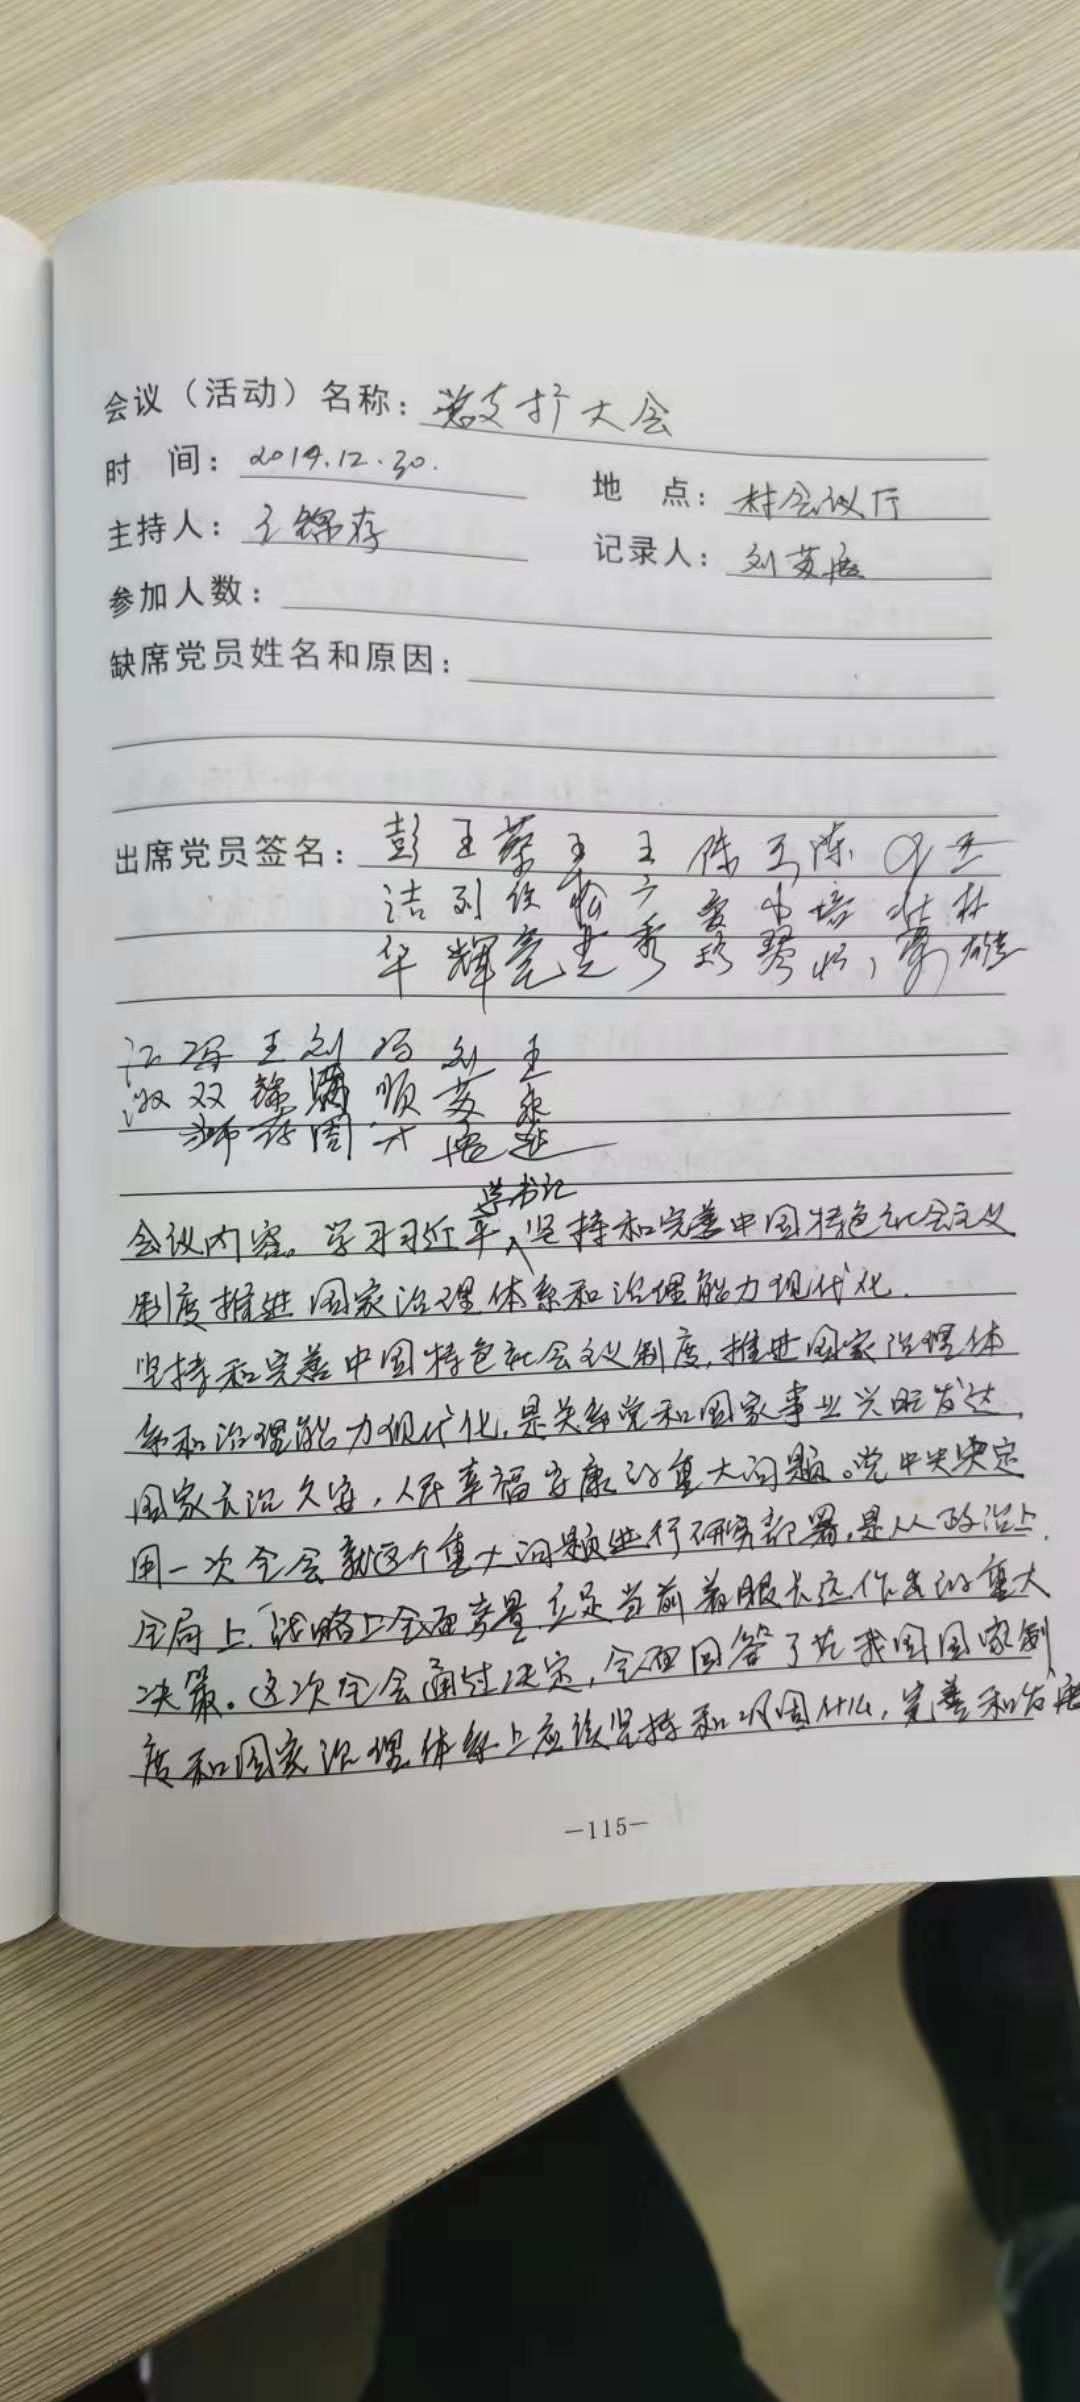 会议（活动）名称：总支扩大会
时 间：2019.12.30.
地 点：村会议厅
主持人：王锦存
记录人：刘苏
参加人数：
缺席党员姓名和原因：
出席党员签名：彭 王 蔡 王 王 陈 王 陈
洁 列 松 广 爱 小 培 壮 林
华 辉 亮 秀 珍 琴 雄
江 冯 王 刘 冯 刘 王
淑 双 锦 满 顺 苏 永
狮 存 周 开
总书记
会议内容。学习习近平∧坚持和完善中国特色社会主义
制度推进国家治理体系和治理能力现代化.
坚持和完善中国特色社会主义制度，推进国家治理体
系和治理能力现代化，是关系党和国家事业兴旺发达，
国家长治久安，人民幸福安康的重大问题。党中央决定
用一次全会就这个重大问题进行研究部署，是从政治上.
全局上.战略上全面考量.立足当前着眼长远作出的重大
决策。这次全会通过决定，全面回答了在我国国家制
度和国家治理体系上应该坚持和巩固什么，完善和发展
-115-